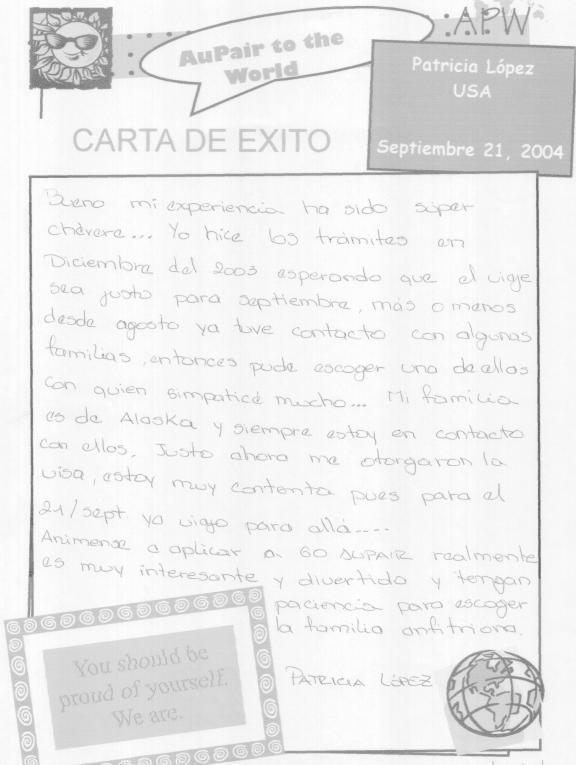 APW
AuPair to the
World
Patricia López
USA
Septiembre 21, 2004
CARTA DE EXITO
Bueno mi experiencia ha sido súper
chévere... Yo hice los trámites en
Diciembre del 2003 esperando que el viaje
sea justo para septiembre, más o menos
desde agosto ya tuve contacto con algunas
familias, entonces pude escoger una de ellas
con quien simpaticé mucho... Mi familia
es de Alaska y siempre estoy en contacto
con ellos. Justo ahora me otorgaron la
visa, estoy muy contenta pues para el
21/sept ya viajo para allá....
Animense a aplicar a GO AUPAIR realmente
es muy interesante y divertido y tengan
paciencia para escoger
la familia anfitriona.
PATRICIA LÓPEZ
You should be
proud of yourself.
We are.